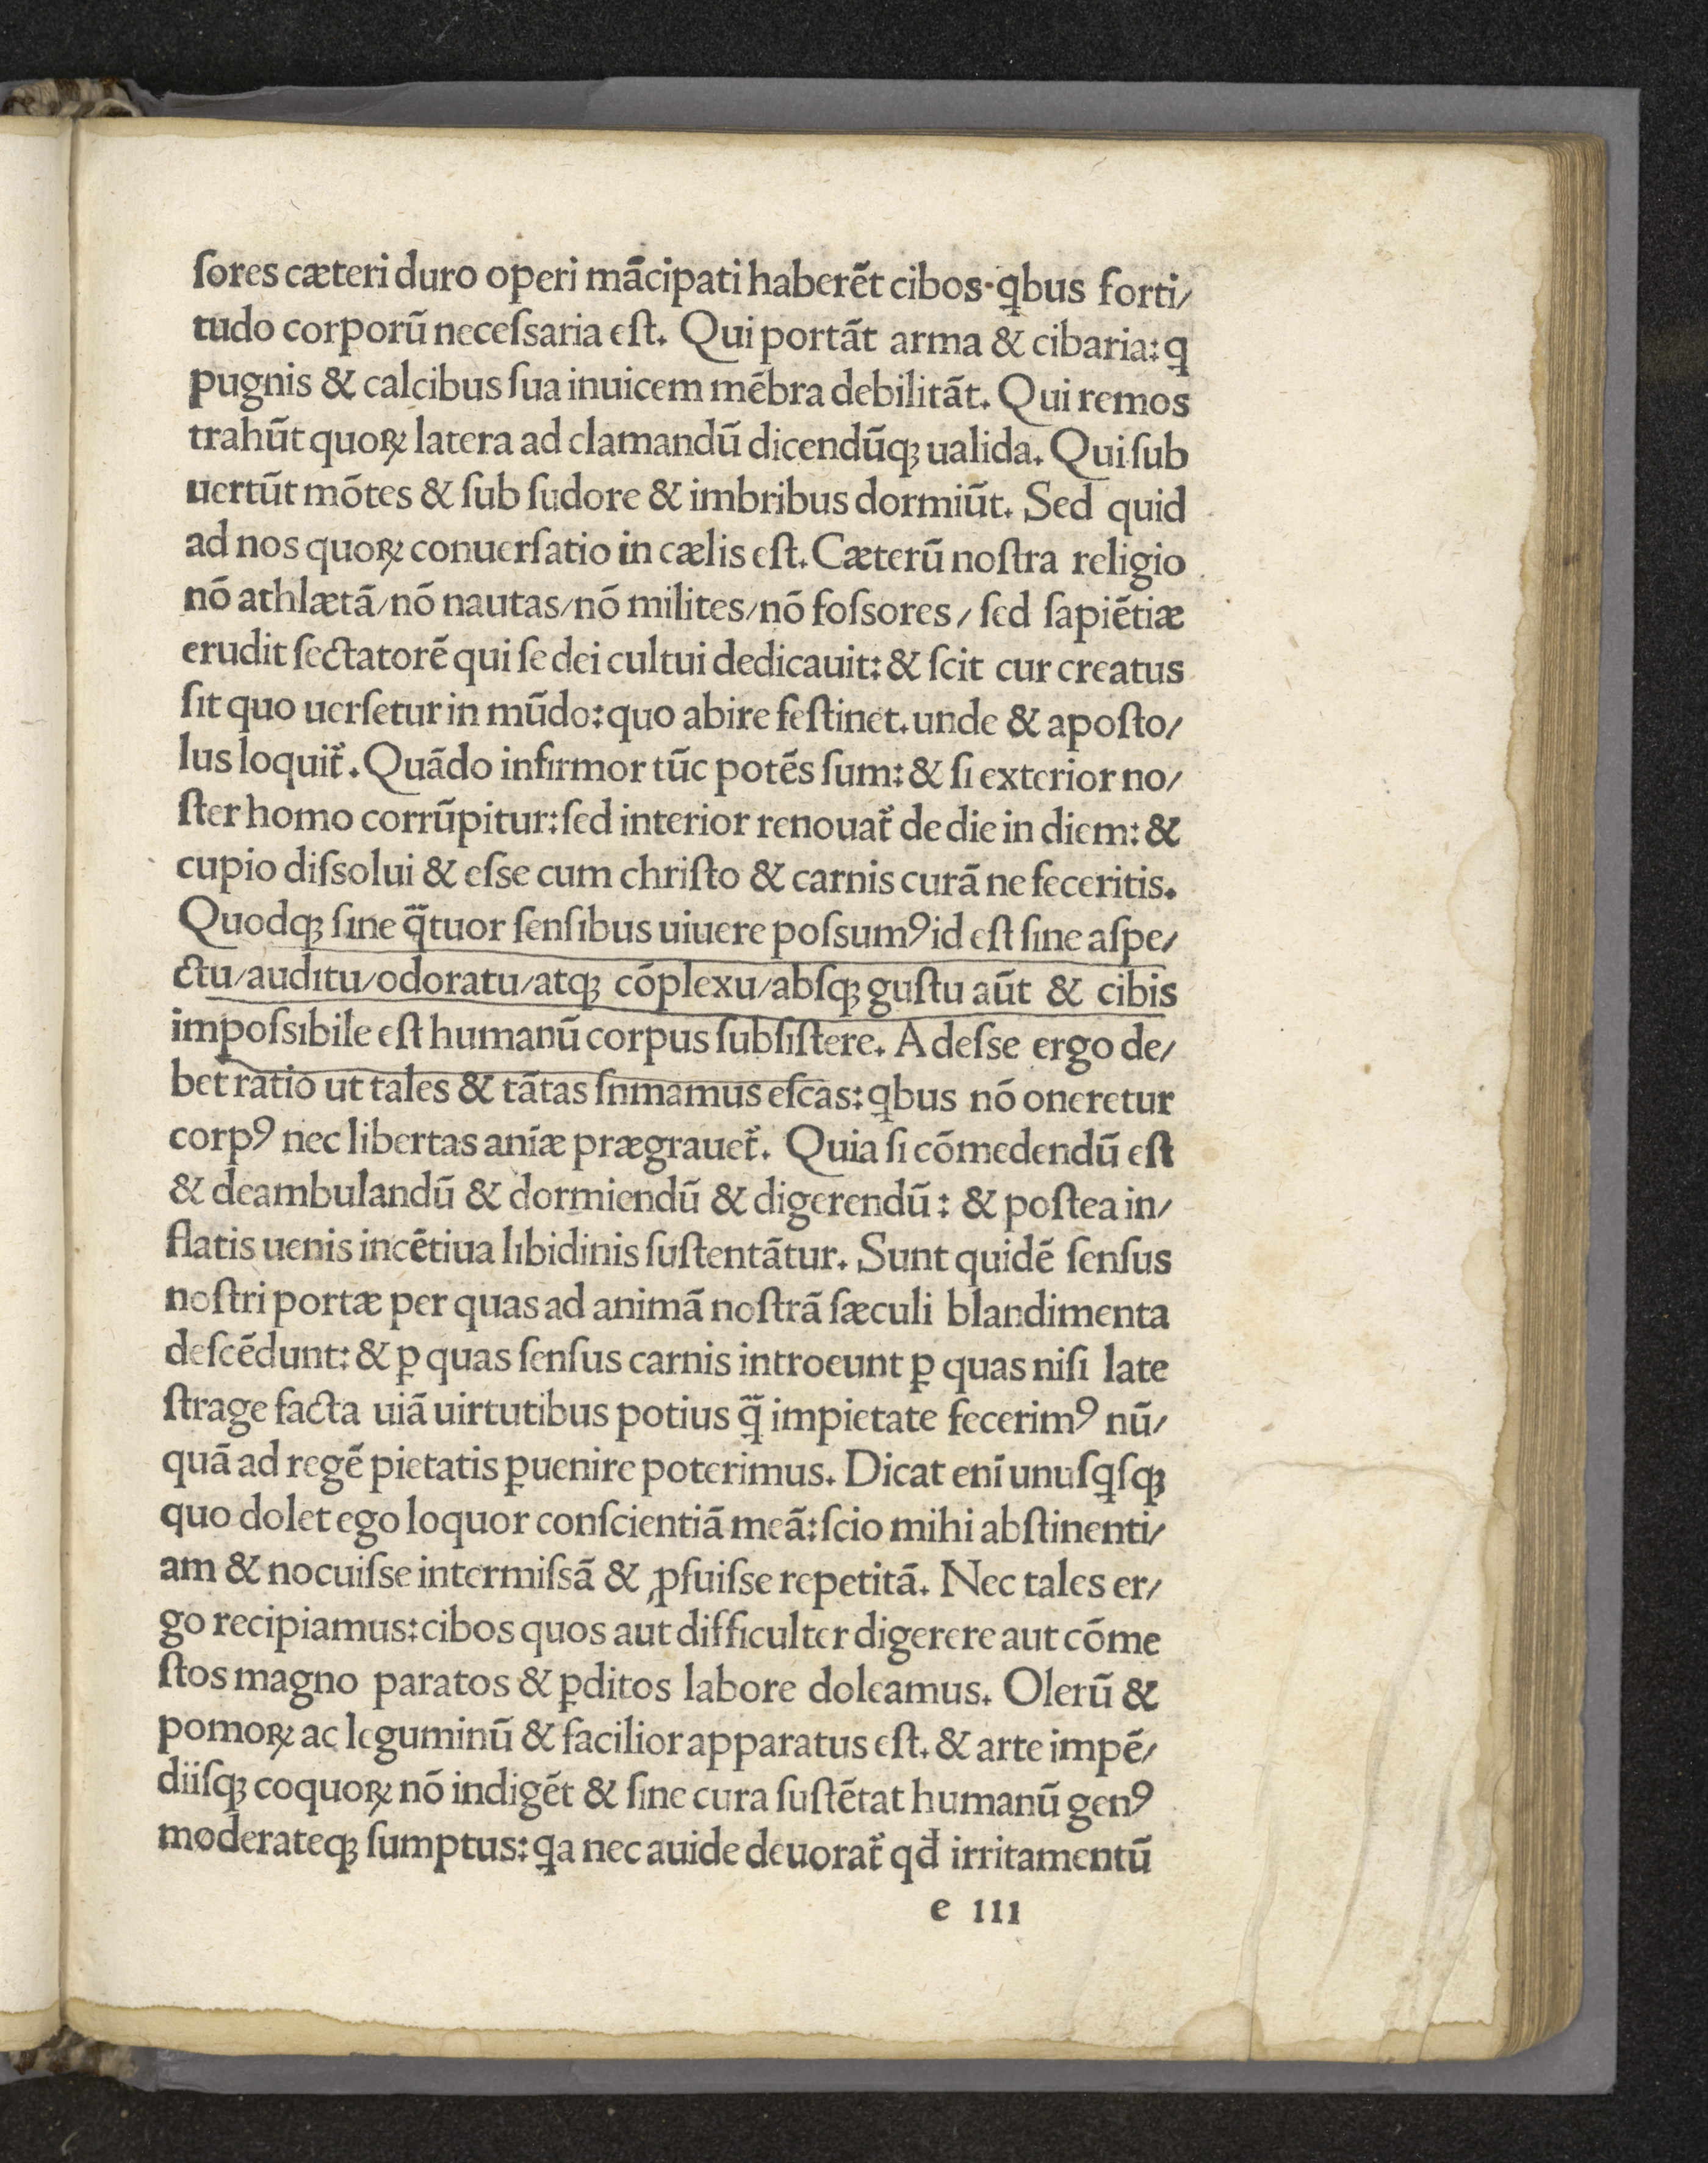 ſores cæteri duro operi mãcipati haberẽt cibos·ꝗbus forti/
tudo corporũ neceſsaria eſt. Qui portãt arma & cibaria: ꝗ
pugnis & calcibus ſua inuicem mẽbra debilitãt. Qui remos
trahũt quoꝝ latera ad clamandũ dicendũqꝫ ualida. Qui ſub
uertũt mõtes & ſub ſudore & imbribus dormiũt. Sed quid
ad nos quoꝝ conuerſatio in cælis eſt. Cæterũ noſtra religio
nõ athlætã/nõ nautas/nõ milites/nõ foſsores/ ſed ſapiẽtiæ
erudit ſectatorẽ qui ſe dei cultui dedicauit: & ſcit cur creatus
ſit quo uerſetur in mũdo: quo abire feſtinet. unde & apoſto/
lus loquit̃. Quãdo infirmor tũc potẽs ſum: & ſi exterior no/
ſter homo corrũpitur: ſed interior renouat̃ de die in diem: &
cupio diſsolui & eſse cum chriſto & carnis curã ne feceritis.
Quodqꝫ ſine q̃tuor ſenſibus uiuere poſsumꝰ id eſt ſine aſpe/
ctu/auditu/odoratu/atqꝫ cõplexu/abſqꝫ guſtu aũt & cibis
impoſsibile eſt humanũ corpus ſubſiſtere. Adeſse ergo de/
bet ratio ut tales & tãtas ſnmamus eſcas: ꝗbus nõ oneretur
corpꝰ nec libertas anĩæ prægrauet̃. Quia ſi cõmedendũ eſt
& deambulandũ & dormiendũ & digerendũ: & poſtea in/
flatis uenis incẽtiua libidinis ſuſtentãtur. Sunt quidẽ ſenſus
noſtri portæ per quas ad animã noſtrã ſæculi blandimenta
deſcẽdunt: & ꝑ quas ſenſus carnis introeunt ꝑ quas niſi late
ſtrage facta uiã uirtutibus potius q̃ impietate fecerimꝰ nũ/
quã ad regẽ pietatis ꝑuenire poterimus. Dicat enĩ unuſꝗſqꝫ
quo dolet ego loquor conſcientiã meã: ſcio mihi abſtinenti/
am & nocuiſse intermiſsã & ꝓfuiſse repetitã. Nec tales er/
go recipiamus: cibos quos aut difficulter digerere aut cõme
ſtos magno paratos & ꝑditos labore doleamus. Olerũ &
pomoꝝ ac leguminũ & facilior apparatus eſt. & arte impẽ/
diiſqꝫ coquoꝝ nõ indigẽt & ſine cura ſuſtẽtat humanũ genꝰ
moderateqꝫ ſumptus: ꝗa nec auide deuorat̃ qđ irritamentũ
e ııı